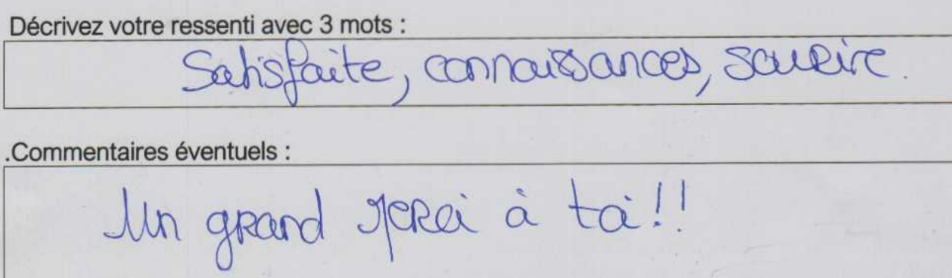 Décrivez votre ressenti avec 3 mots :
Satisfaite, connaissances, sourire.
.Commentaires éventuels :
Un grand merci à toi!!